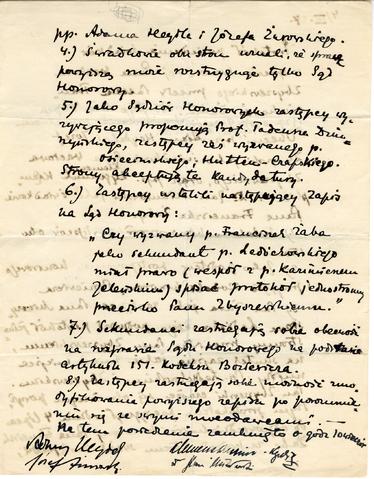 pp. Adama Heydla i Józefa Żurowskiego.
4.) Świadkowie obu stron uznali, że sprawę
powyższą może rozstrzygnąć tylko Sąd
Honorowy.
5.) Jako Sędziów Honorowych zastępcy wy-
zywającego proponują Prof. Tadeusza
zastępcy zaś wyzwanego p.
Hutten-Czapskiego.
Strony akceptują te kandydatury.
6.) Zastępcy ustalili następujący zapis
na Sąd Honorowy:
„Czy wyzwany p. Franciszek Zaba
jako sekundant p. Ledóchowskiego
miał prawo (wespół z p. Kazimierzem
) spisać protokół jednostronny
przeciwko Panu Zbyszewskiemu."
7.) Sekundanci zastrzegają sobie obecność
na rozprawie Sądu Honorowego na podstawie
artykułu 151. Kodeksu Boziewicza.
8.) Zastępcy zastrzegają sobie możność zmo-
dyfikowania powyższego zapisu po porozumie-
niu się ze swymi mocodawcami —
Na tem posiedzenie zamknięto o godz.